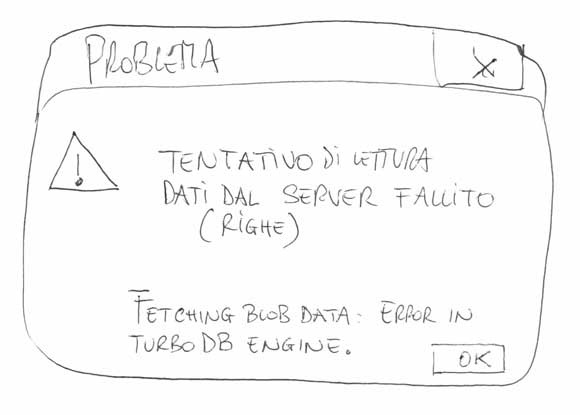 PROBLEMA
X
!
TENTATIVO DI LETTURA
DATI DAL SERVER FALLITO
(RIGHE)
FETCHING BLOB DATA: ERROR IN
TURBO DB ENGINE.
OK